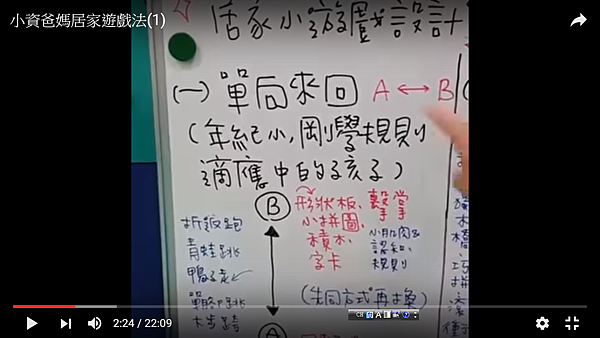 小資爸媽居家遊戲法(1)
居家小遊戲設計
(一) 單向來回 A ↔ B
(年紀小,剛學規則
適應中的孩子)
B
形狀板、擊掌
小拼圖
積木
字卡
小肌肉&
認知
規則
青蛙跳
鴨子走
單腳跳
大步跨
(先同方式再換)
2:24 / 22:09